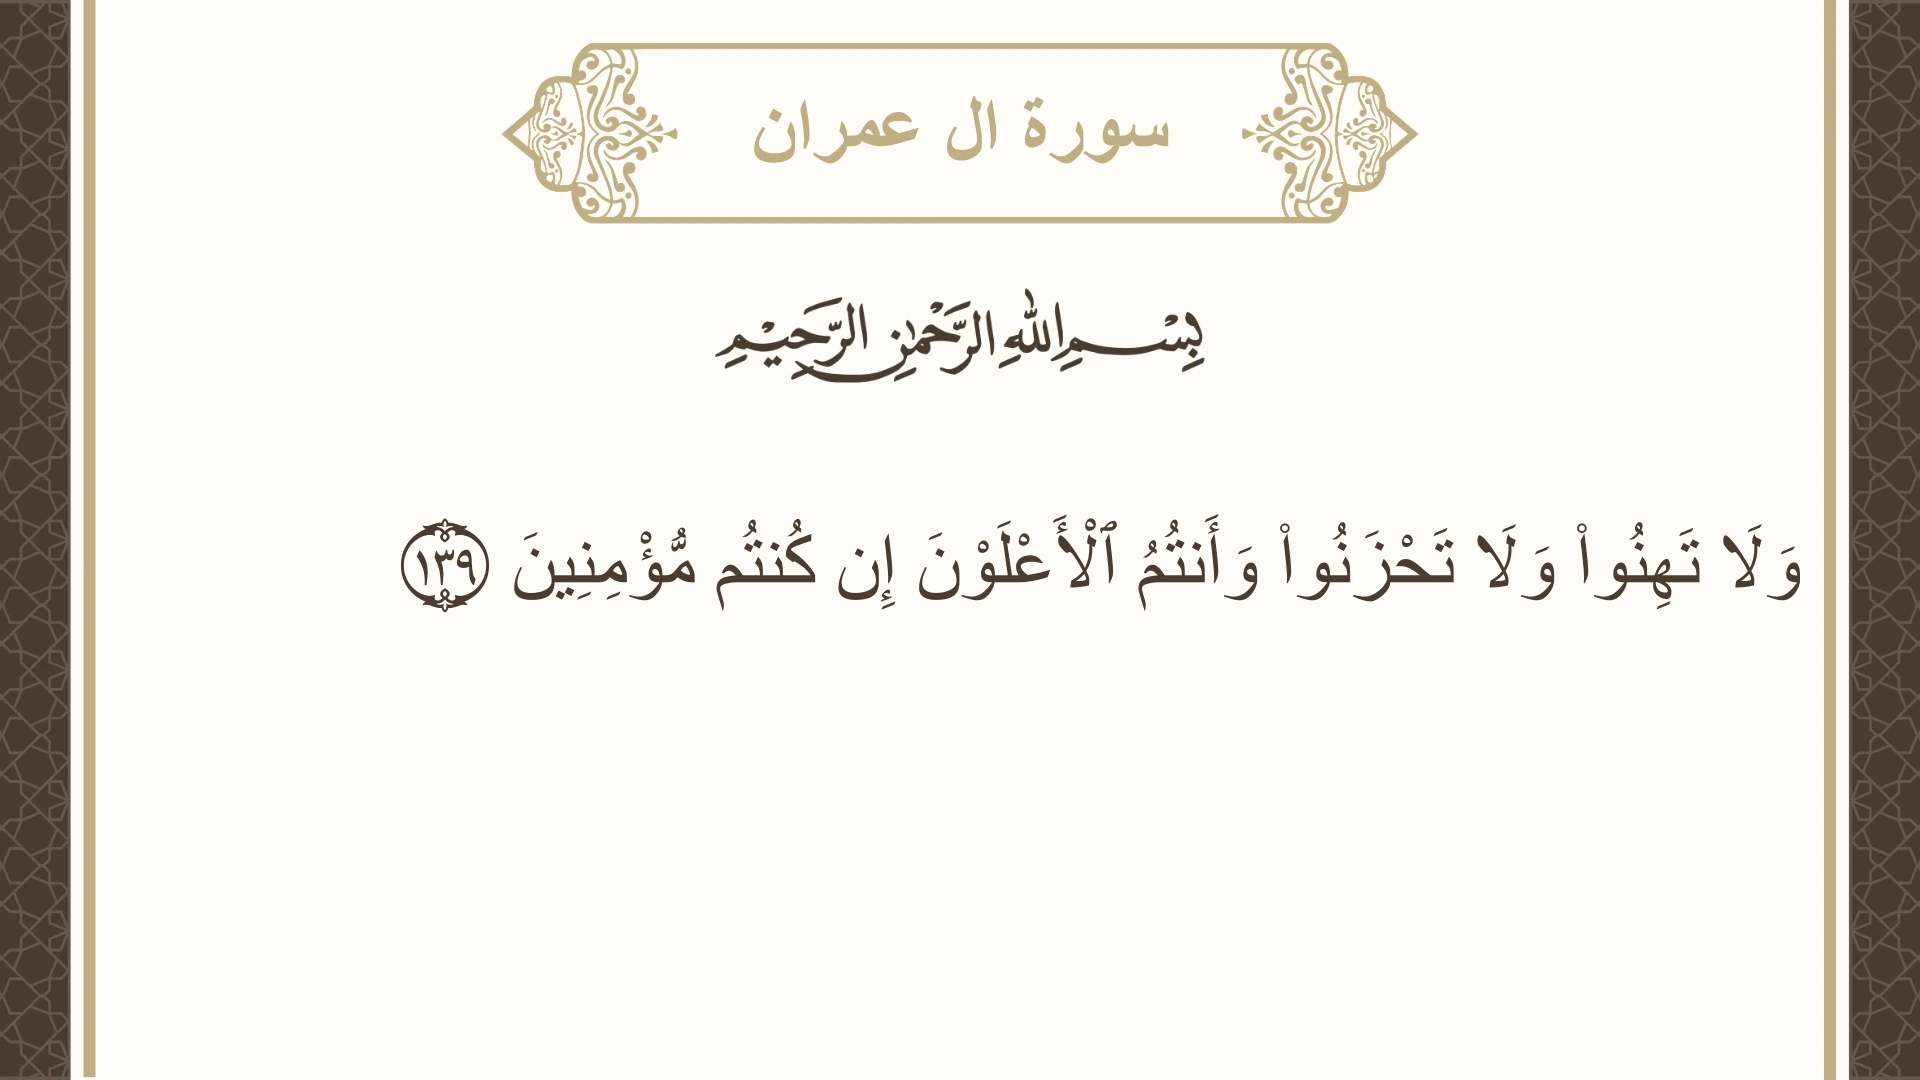 سورة ال عمران
بِسْمِ اللهِ الرَّحْمٰنِ الرَّحِيْمِ
وَلَا تَهِنُوا۟ وَلَا تَحْزَنُوا۟ وَأَنتُمُ ٱلْأَعْلَوْنَ إِن كُنتُم مُّؤْمِنِينَ ١٣٩